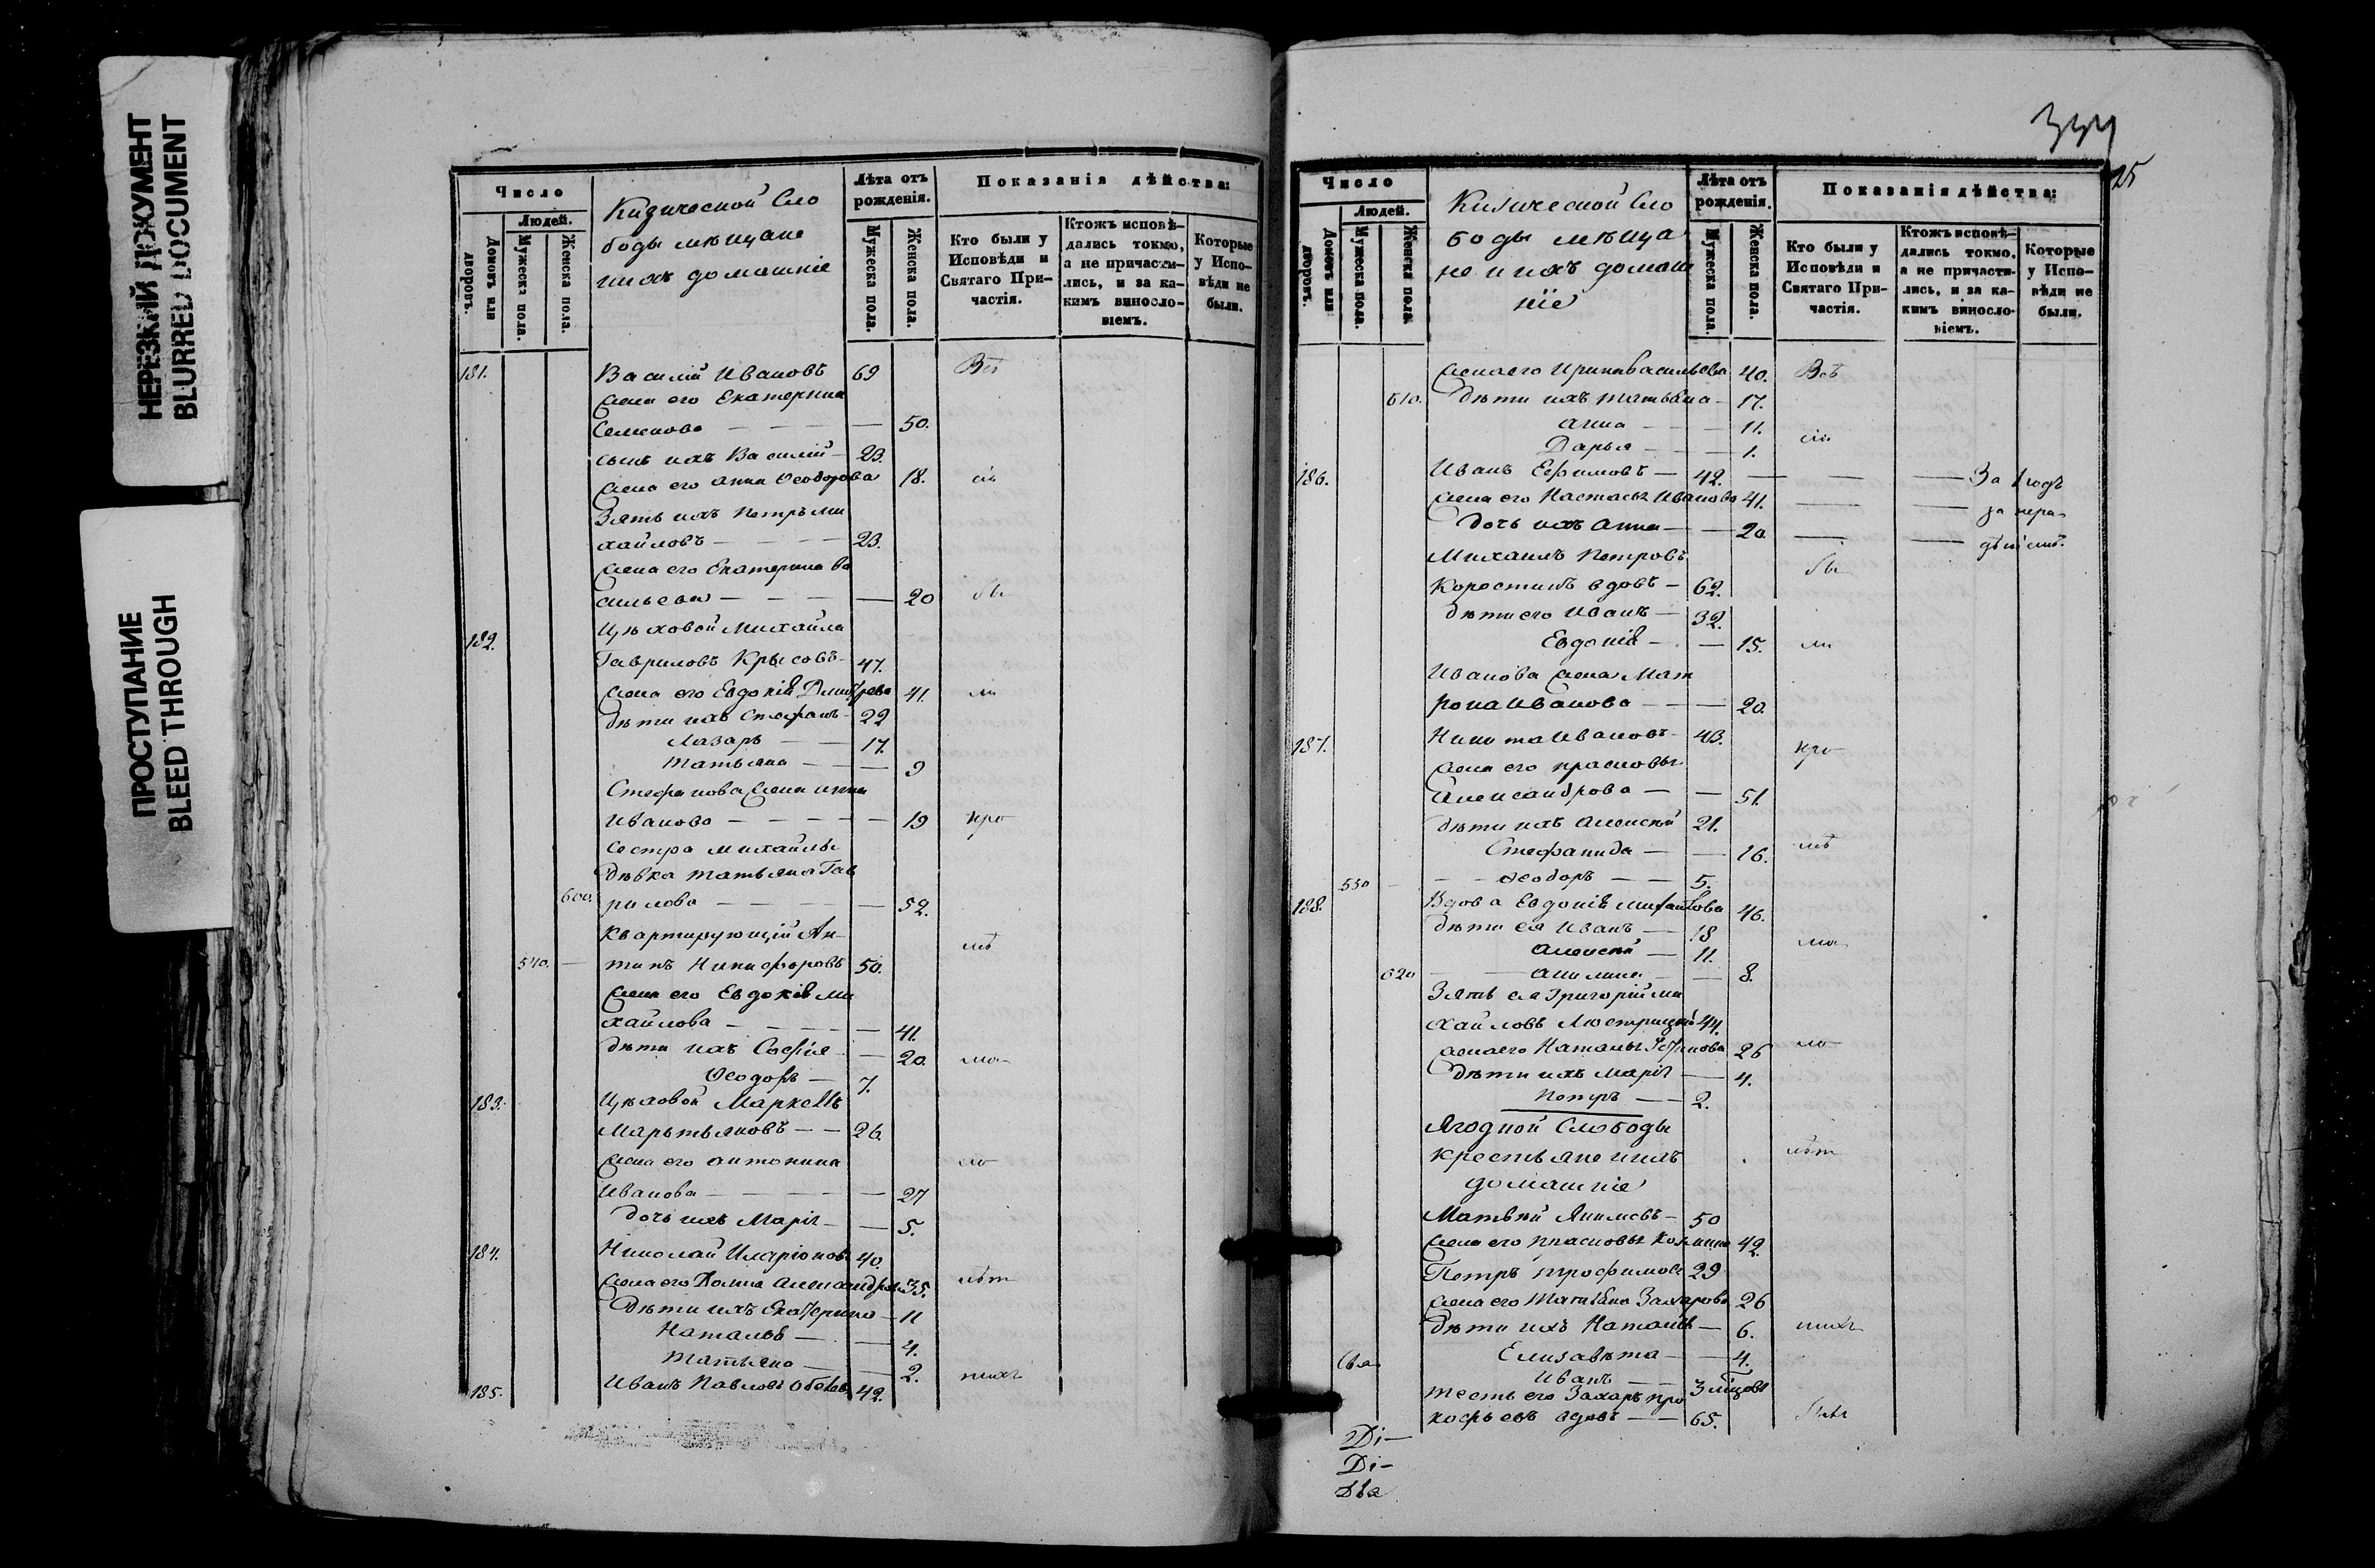 НЕРЕЗКИЙ ДОКУМЕНТ
BLURRED DOCUMENT
ПРОСТУПАНИЕ
BLEED THROUGH
Число
Людей.
Домовъ или дворовъ.
Мужеска пола.
Женска пола.
Кизической Сло
боды мѣщане
и ихъ домашніе
Лѣта отъ рожденія.
Мужеска пола.
Женска пола.
Показанія дѣйства:
Кто были у Исповѣди и Святаго Причастія.
Ктожъ исповѣ-
дались токмо,
а не причасти-
лись, и за ка-
кимъ виносло-
віемъ.
Которые
у Испо-
вѣди не
были.
181. Василій Ивановъ 69 Всѣ
жена его Екатерина
Семенова — 50.
сынъ ихъ Василій — 23.
жена его Анна Ѳеодорова 18. сіи
Зять ихъ Петръ Ми
хайловъ — 23.
жена его Екатерина Ва
сильева — 20 бы
182. Цѣховой Михайла
Гавриловъ Крысовъ — 47.
жена его Евдокія Дмитрева 41. ли
дѣти ихъ Стефанъ — 22
Лазарь — 17.
Татьяна — 9
Стефанова жена Анна
Иванова — 19 кро
сестра Михайлы
дѣвка Татьяна Гав
600. рилова — 52.
Квартирующій Ан
540. — типъ Никифоровъ 50. мѣ
жена его Евдокія Ми
хайлова — 41.
дѣти ихъ Софія — 20. ма
Ѳеодоръ — 7.
183. Цѣховой Маркеллъ
Мартьяновъ — 26.
жена его Антонина ло
Иванова — 27
дочь ихъ Марія — 5.
184. Николай Иларіоновъ 40.
жена его Александрова 35. лѣт
дѣти ихъ Екатерина — 11
Наталья — 4.
Татьяна — 2.
185. Иванъ Павловъ 42. нихъ
25
Число
Людей.
Домовъ или дворовъ.
Мужеска пола.
Женска пола.
Кизической Сло
боды мѣща
не и ихъ домаш
ніе
Лѣта отъ рожденія.
Мужеска пола.
Женска пола.
Показанія дѣйства:
Кто были у Исповѣди и Святаго Причастія.
Ктожъ исповѣ-
дались токмо,
а не причасти-
лись, и за ка-
кимъ виносло-
віемъ.
Которые
у Испо-
вѣди не
были.
жена его Ирина Васильева 40. Всѣ
610. дѣти ихъ Татьяна — 17.
Анна — 11.
Дарья — 1. сіи
186. Иванъ Ефимовъ — 42. — За 1 годъ
жена его Настасья Иванова 41. — за нера
дочь ихъ Анна — 20. — дѣніемъ.
Михаилъ Петровъ
Коростинъ вдовъ — 62. бы
дѣти его Иванъ — 32.
Евдокія — 15. ли
Иванова жена Мат
рона Иванова — 20.
187. Никита Ивановъ — 43. кро
жена его Прасковья
Александрова — 51.
дѣти ихъ Алексѣй 21.
Стефанида — 16. мѣ
550 — Ѳеодоръ — 5.
188. Вдова Евдокія Михайлова 46.
дѣти ея Иванъ — 18
Алексѣй — 11. ма
620 — Акилина — 8.
Зять ея Григорій Ми
хайловъ 44.
жена его Наталья 26 ло
дѣти ихъ Марія — 4.
Петръ — 2.
Ягодной Слободы
крестьяне и ихъ лѣт
домашніе
Матвѣй Якимовъ — 50
жена его Прасковья Козмина 42.
Петръ Трофимовъ 29
жена его Татьяна Захарова 26
дѣти ихъ Наталья — 6. нихъ
Елизавѣта — 4.
Иванъ — 3
тесть его Захаръ Про
кофьевъ вдовъ — 65.
Свя
Ді—
Ді—